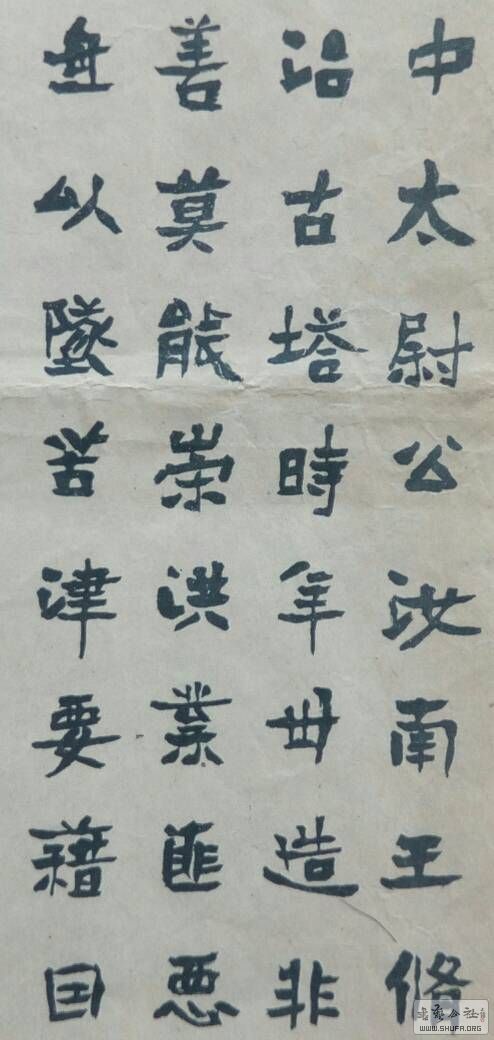 中太尉公汝南王修
治古塔時年丗造非
善莫能崇洪業匪惡
無以墜苦津要藉因
書藝公社
WWW.SHUFA.ORG